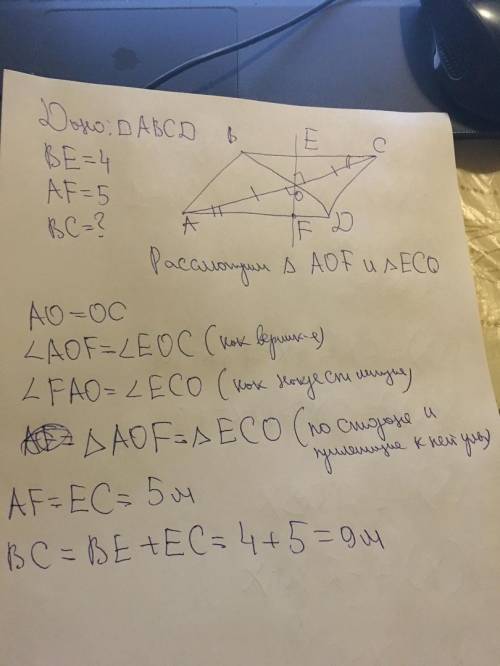 Дано: ▱ ABCD
BE=4
AF=5
BC=?
B E C
O
A F D
Рассмотрим △ AOF и △ECO
AO=OC
∠AOF=∠EOC (как вертик-е)
∠FAO=∠ECO (как накрест лящие)
△AOF=△ECO (по стороне и
прилежащие к ней углы)
AF=EC= 5м
BC = BE+EC= 4+5=9м